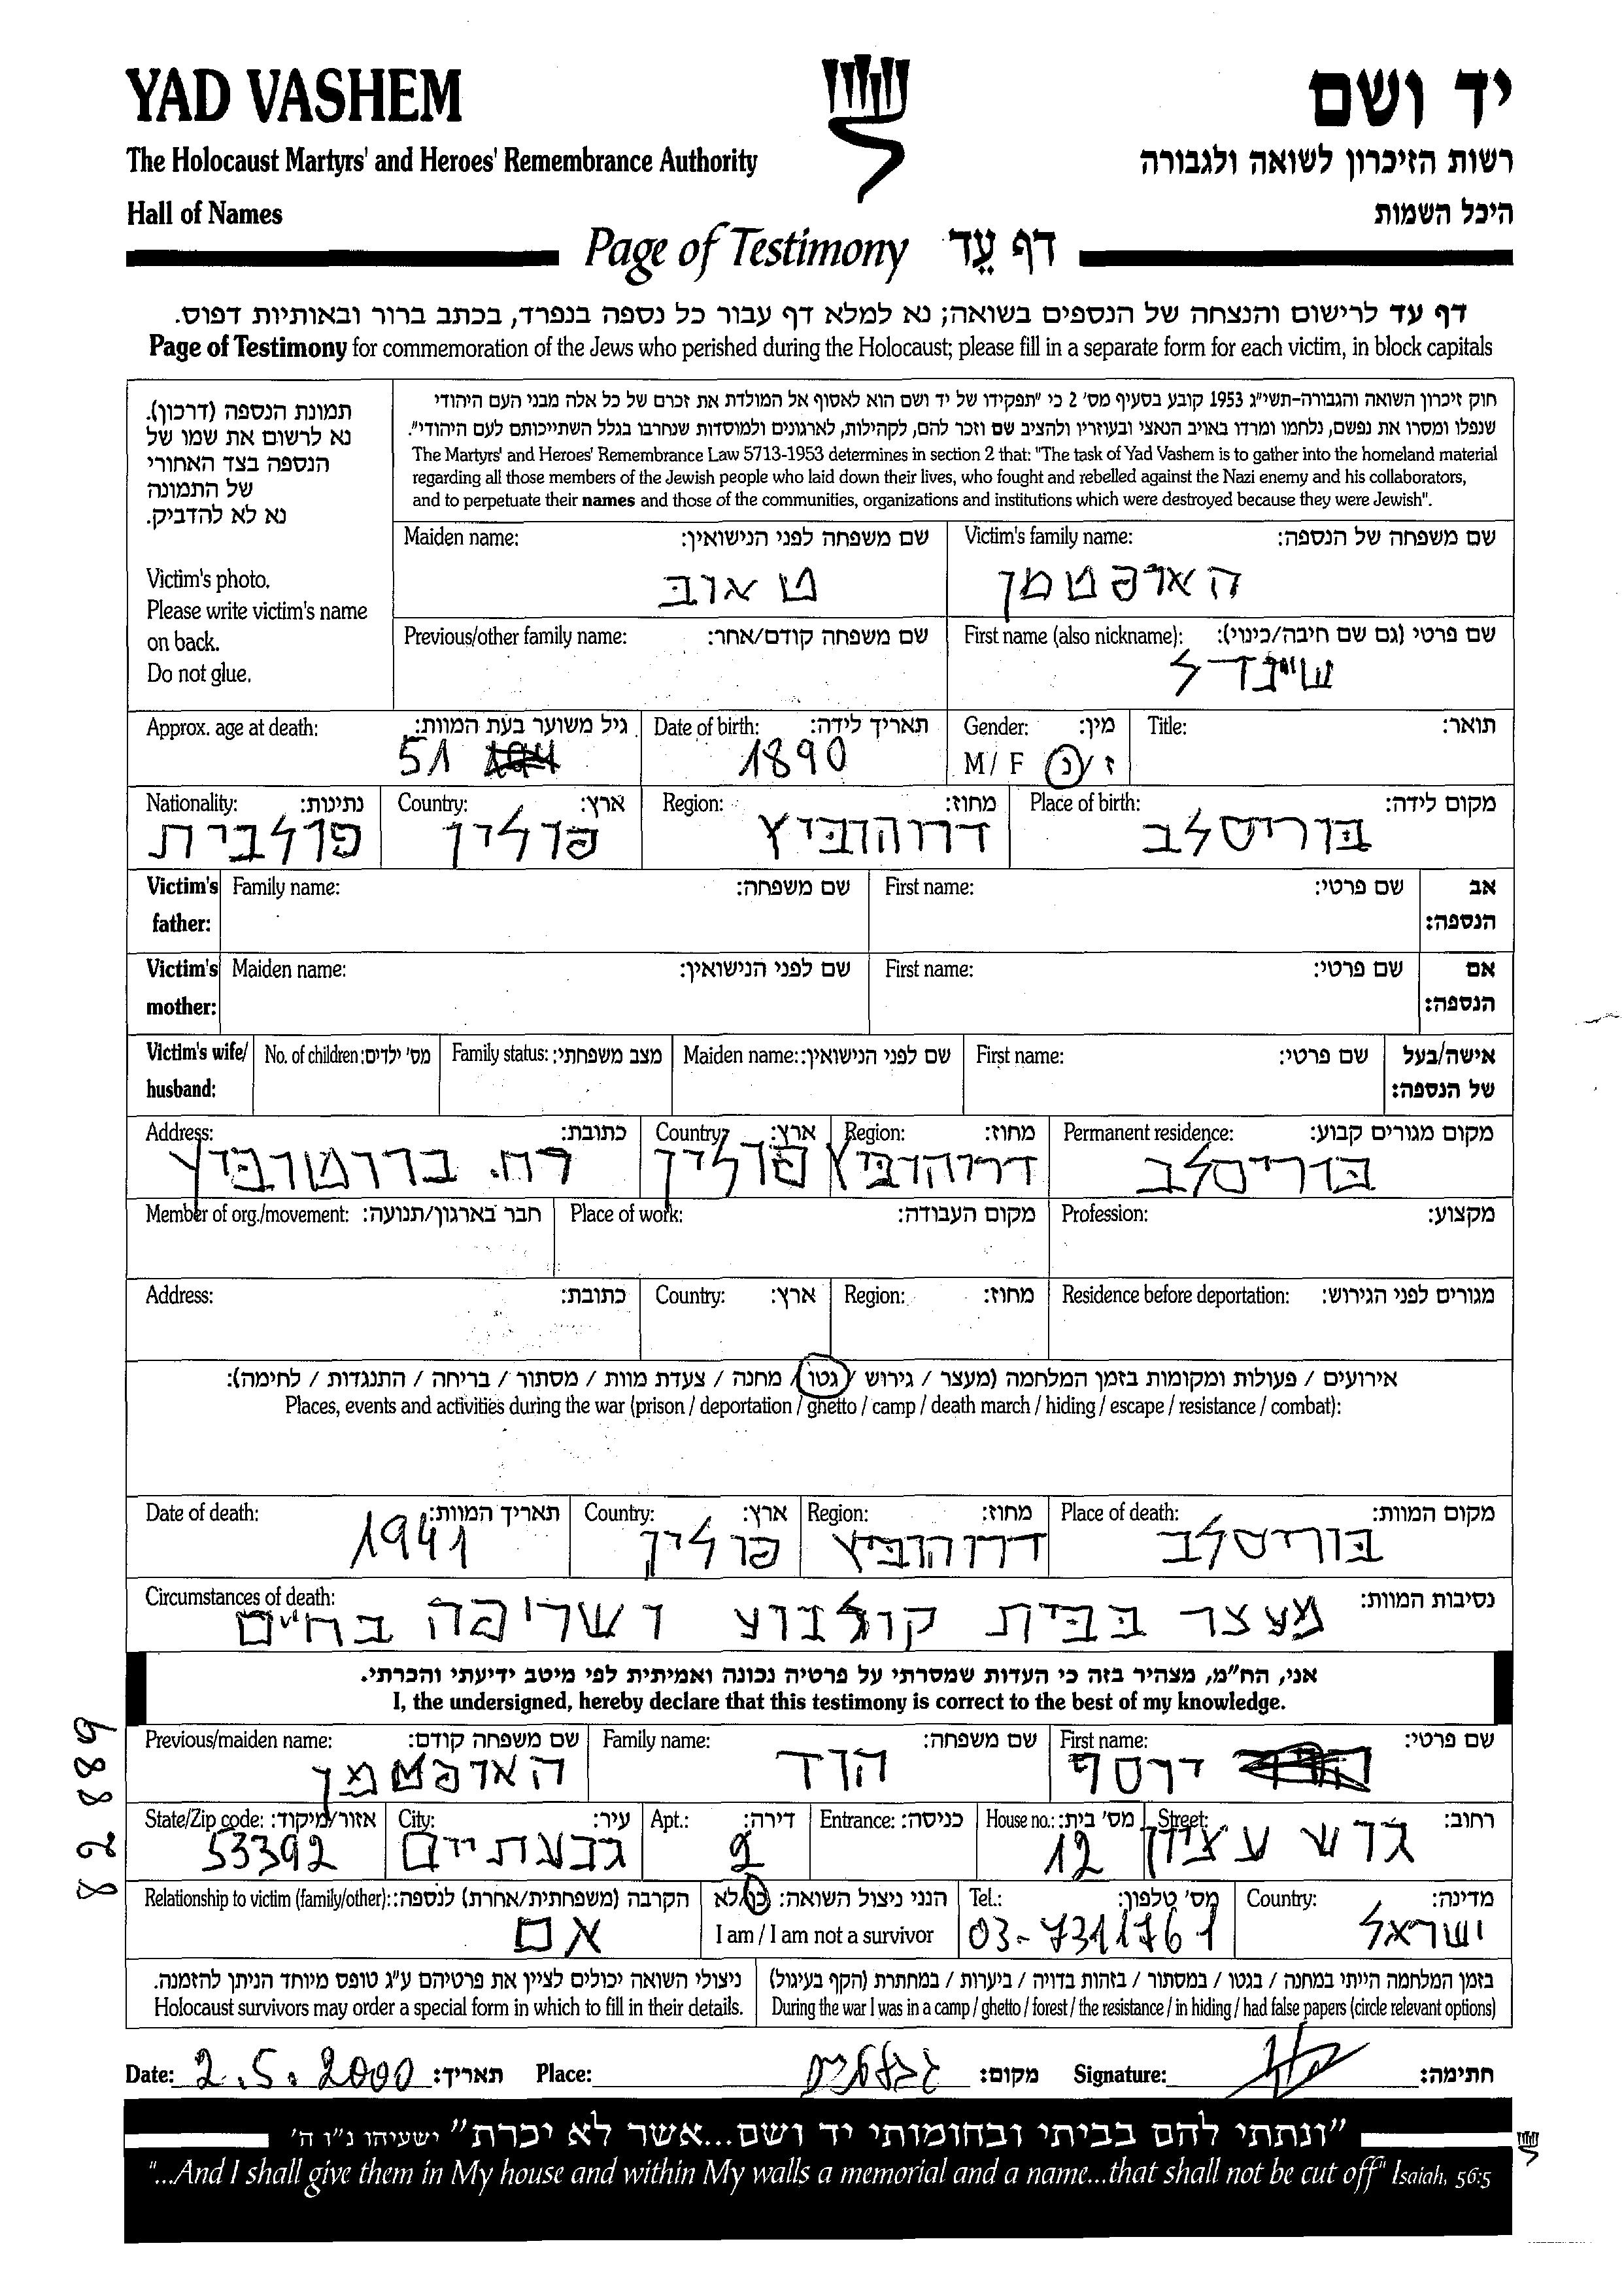 YAD VASHEM
יד ושם
The Holocaust Martyrs' and Heroes' Remembrance Authority
רשות הזיכרון לשואה ולגבורה
Hall of Names
היכל השמות
Page of Testimony דף עֵד
דף עד לרישום והנצחה של הנספים בשואה; נא למלא דף עבור כל נספה בנפרד, בכתב ברור ובאותיות דפוס.
Page of Testimony for commemoration of the Jews who perished during the Holocaust; please fill in a separate form for each victim, in block capitals
תמונת הנספה (דרכון).
נא לרשום את שמו של
הנספה בצד האחורי
של התמונה
נא לא להדביק.
Victim's photo.
Please write victim's name
on back.
Do not glue.
חוק זיכרון השואה והגבורה-תשי"ג 1953 קובע בסעיף מס' 2 כי "תפקידו של יד ושם הוא לאסוף אל המולדת את זכרם של כל אלה מבני העם היהודי
שנפלו ומסרו את נפשם, נלחמו ומרדו באויב הנאצי ובעוזריו ולהציב שם וזכר להם, לקהילות, לארגונים ולמוסדות שנחרבו בגלל השתייכותם לעם היהודי".
The Martyrs' and Heroes' Remembrance Law 5713-1953 determines in section 2 that: "The task of Yad Vashem is to gather into the homeland material
regarding all those members of the Jewish people who laid down their lives, who fought and rebelled against the Nazi enemy and his collaborators,
and to perpetuate their names and those of the communities, organizations and institutions which were destroyed because they were Jewish".
Victim's family name: שם משפחה של הנספה:
הארפטמן
Maiden name: שם משפחה לפני הנישואין:
טאוב
First name (also nickname): שם פרטי (גם שם חיבה/כינוי):
שיינדל
Previous/other family name: שם משפחה קודם/אחר:
Title: תואר:
Gender: מין:
M / F ז / נ
Date of birth: תאריך לידה:
1890
Approx. age at death: גיל משוער בעת המוות:
51
Place of birth: מקום לידה:
בוריסלב
Region: מחוז:
דרוהוביץ
Country: ארץ:
פולין
Nationality: נתינות:
פולנית
Victim's father: Family name: שם משפחה: First name: שם פרטי: אב הנספה:
Victim's mother: Maiden name: שם לפני הנישואין: First name: שם פרטי: אם הנספה:
Victim's wife/ husband: No. of children: מס' ילדים: Family status: מצב משפחתי: Maiden name: שם לפני הנישואין: First name: שם פרטי: אישה/בעל של הנספה:
Permanent residence: מקום מגורים קבוע:
בוריסלב
Region: מחוז:
דרוהוביץ
Country: ארץ:
פולין
Address: כתובת:
רח.
Profession: מקצוע:
Place of work: מקום העבודה:
Member of org./movement: חבר בארגון/תנועה:
Residence before deportation: מגורים לפני הגירוש:
Region: מחוז:
Country: ארץ:
Address: כתובת:
אירועים / פעולות ומקומות בזמן המלחמה (מעצר / גירוש / גטו / מחנה / צעדת מוות / מסתור / בריחה / התנגדות / לחימה):
Places, events and activities during the war (prison / deportation / ghetto / camp / death march / hiding / escape / resistance / combat):
Place of death: מקום המוות:
בוריסלב
Region: מחוז:
דרוהוביץ
Country: ארץ:
פולין
Date of death: תאריך המוות:
1941
Circumstances of death: נסיבות המוות:
מעצר בבית קולנוע ושריפה בחיים
אני, הח"מ, מצהיר בזה כי העדות שמסרתי על פרטיה נכונה ואמיתית לפי מיטב ידיעתי והכרתי.
I, the undersigned, hereby declare that this testimony is correct to the best of my knowledge.
First name: שם פרטי:
יוסף
Family name: שם משפחה:
הוד
Previous/maiden name: שם משפחה קודם:
הארפטמן
Street: רחוב:
גוש עציון
House no.: מס' בית:
12
Entrance: כניסה:
Apt.: דירה:
2
City: עיר:
גבעתיים
State/Zip code: אזור/מיקוד:
53392
Country: מדינה:
ישראל
Tel.: מס' טלפון:
03-7311761
הנני ניצול השואה: כן/לא
I am / I am not a survivor
Relationship to victim (family/other): הקרבה (משפחתית/אחרת) לנספה:
אם
בזמן המלחמה הייתי במחנה / בגטו / במסתור / בזהות בדויה / ביערות / במחתרת (הקף בעיגול)
During the war I was in a camp / ghetto / forest / the resistance / in hiding / had false papers (circle relevant options)
ניצולי השואה יכולים לציין את פרטיהם ע"ג טופס מיוחד הניתן להזמנה.
Holocaust survivors may order a special form in which to fill in their details.
Date: 2.5.2000 תאריך: Place: גבעתיים מקום: Signature: חתימה:
"ונתתי להם בביתי ובחומותי יד ושם...אשר לא יכרת" ישעיהו נ"ו ה'
"...And I shall give them in My house and within My walls a memorial and a name...that shall not be cut off" Isaiah, 56:5
82889